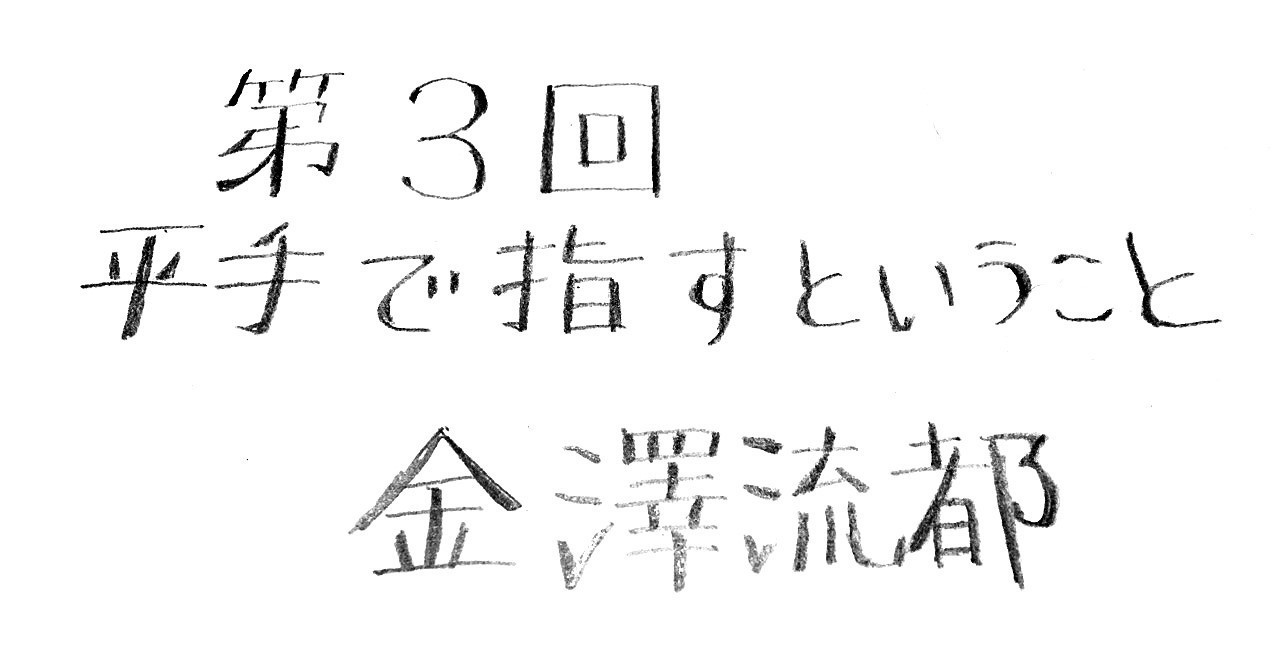 第３回
平手で指すということ
金澤流都